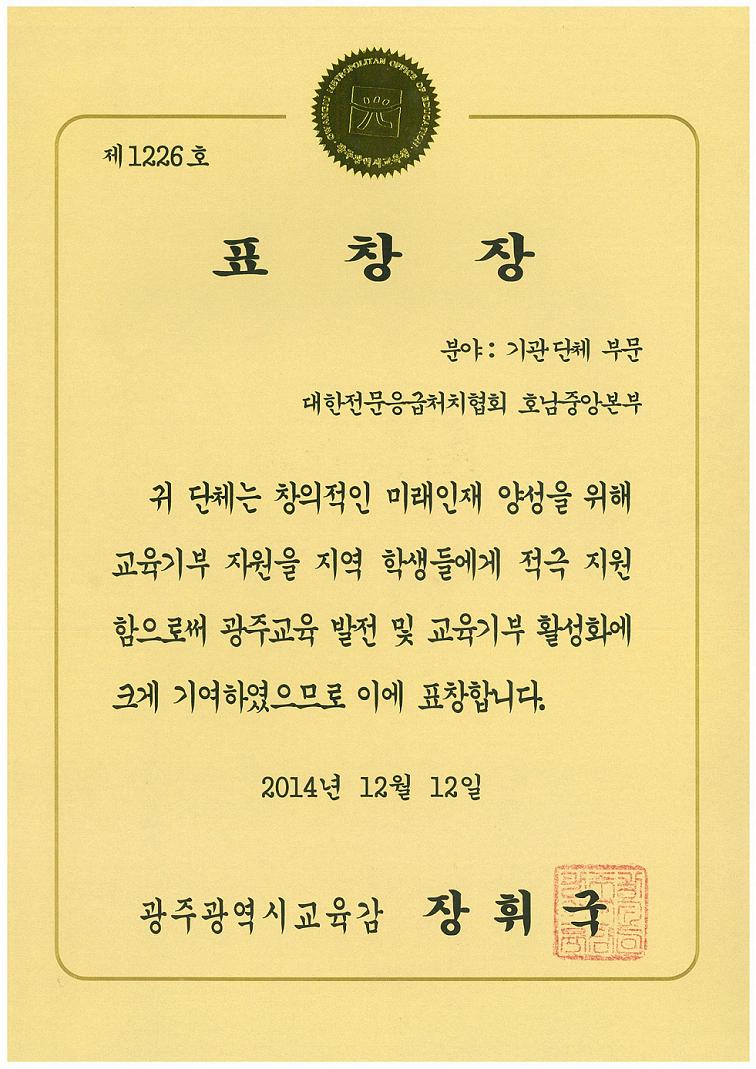 GWANGJU METROPOLITAN OFFICE OF EDUCATION
광주광역시교육청
제1226호
표 창 장
분야 : 기관단체 부문
대한전문응급처치협회 호남중앙본부
귀 단체는 창의적인 미래인재 양성을 위해
교육기부 자원을 지역 학생들에게 적극 지원
함으로써 광주교육 발전 및 교육기부 활성화에
크게 기여하였으므로 이에 표창합니다.
2014년 12월 12일
광주광역시교육감 장 휘 국